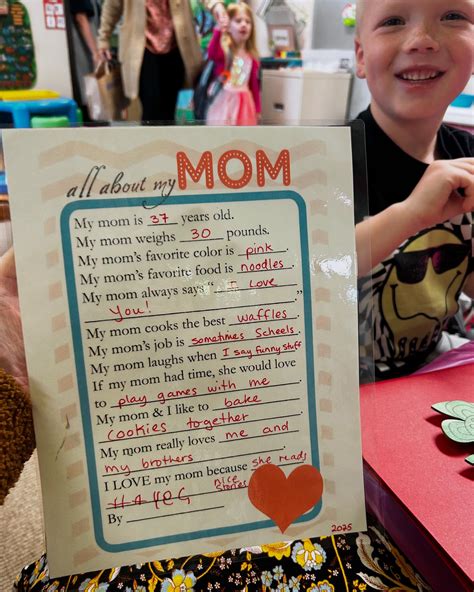 all about my MOM
My mom is 37 years old.
My mom weighs 30 pounds.
My mom's favorite color is pink.
My mom's favorite food is noodles.
My mom always says " I love
you! "
My mom cooks the best waffles.
My mom's job is sometimes Scheels.
My mom laughs when I say funny stuff
If my mom had time, she would love
to play games with me
My mom & I like to bake
cookies together
My mom really loves me and
my brothers
I LOVE my mom because she reads
nice
stories
By
2025